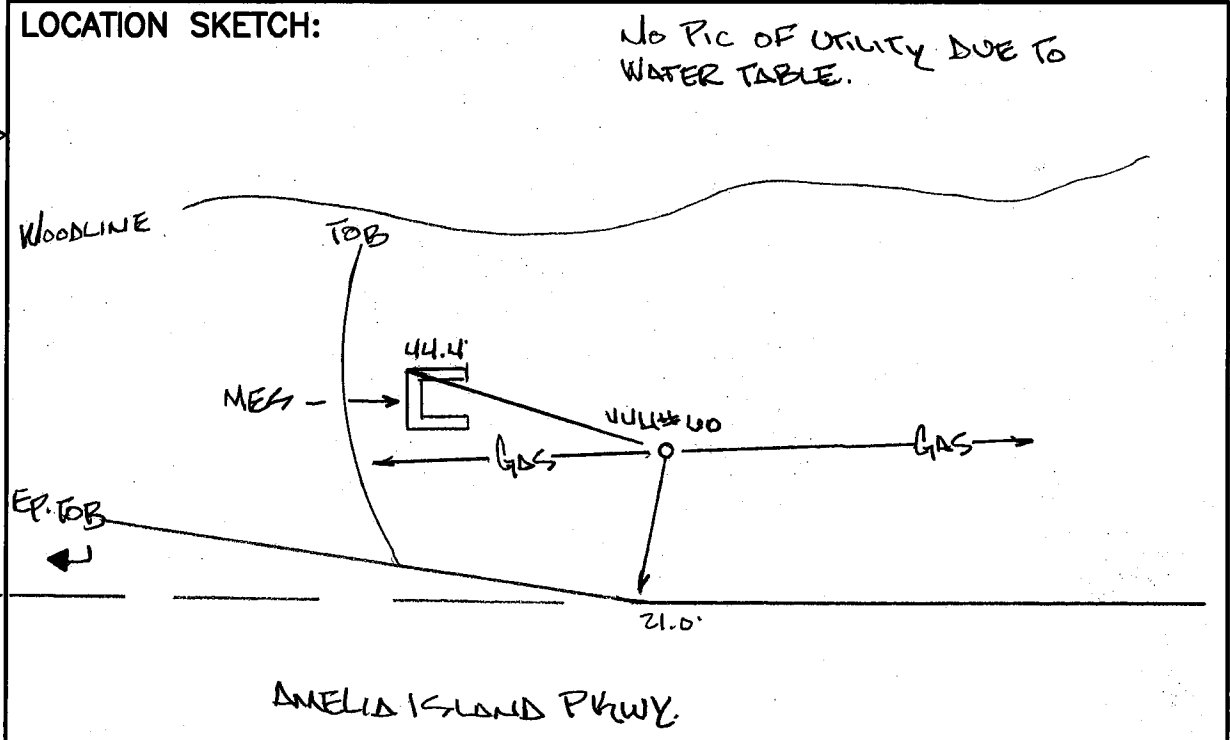 LOCATION SKETCH:
NO PIC OF UTILITY DUE TO
WATER TABLE.
WOODLINE
TOB
44.4'
MES -
VVH# 60
GAS
GAS
EP. TOB
21.0'
AMELIA ISLAND PKWY.